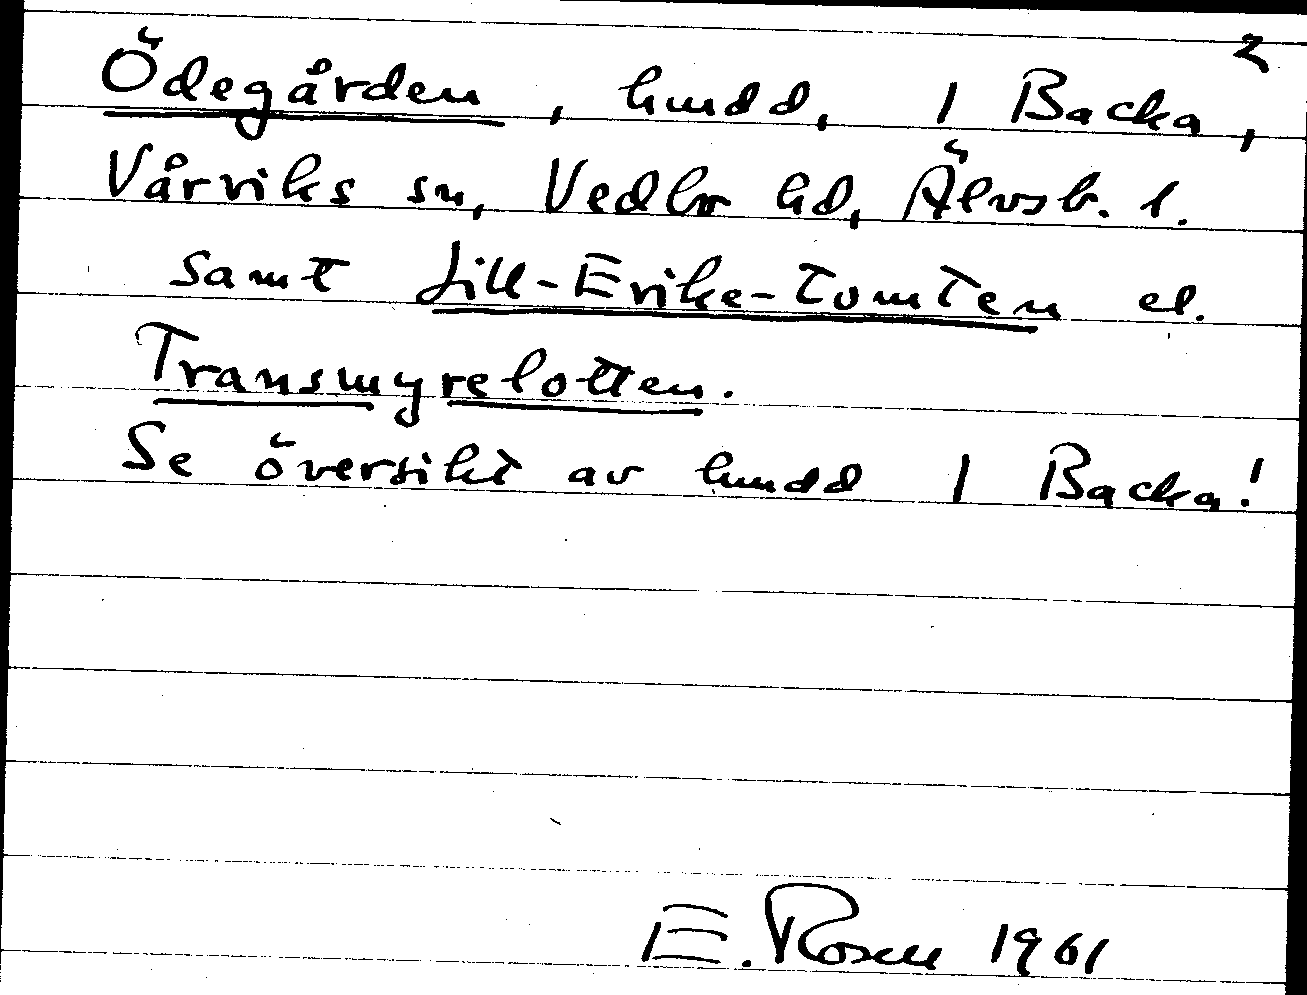 2
Ödegården, hmdd, 1 Backa,
Vårviks sn, Vedbo hd, Älvsb. l.
samt Lill-Erike-Tomten el.
Transmyrelotten.
Se översikt av hmdd 1 Backa!
E. Rosell 1961